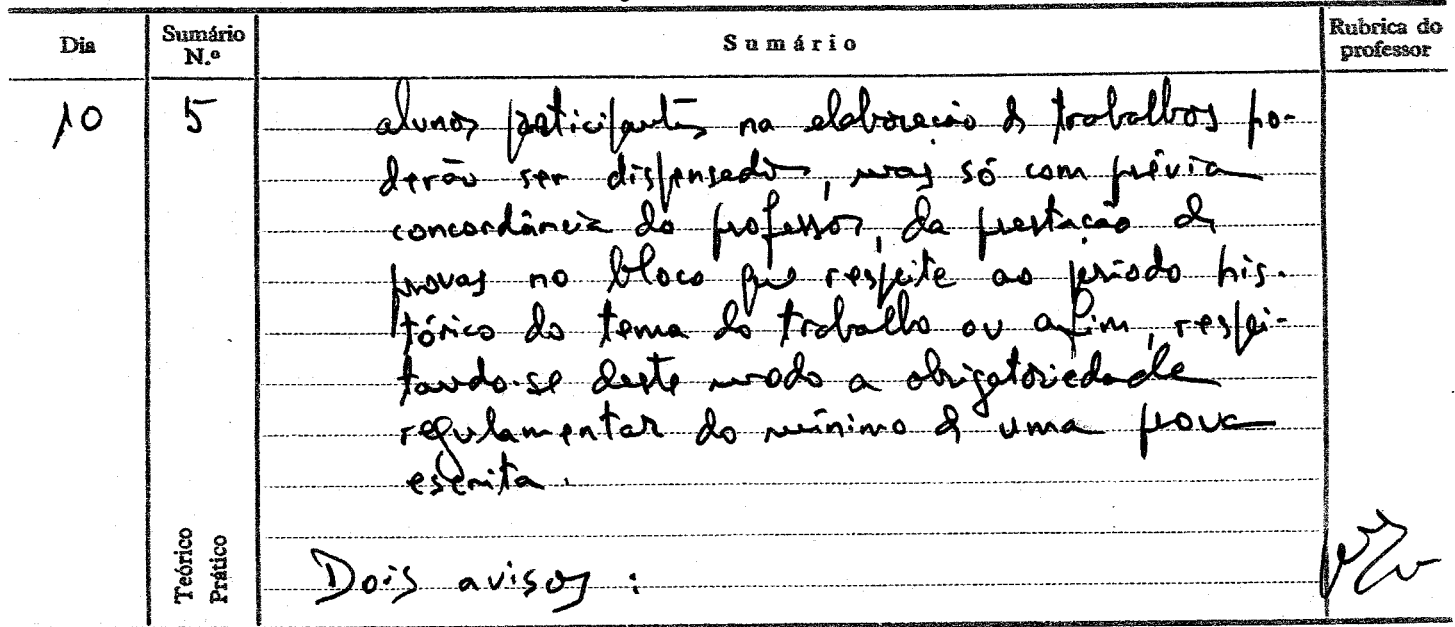 Dia
Sumário N.º
Sumário
Rubrica do professor
10
5
alunos participantes na elaboração de trabalhos po-
derão ser dispensados, mas só com prévia
concordância do professor, da prestação de
provas no bloco que respeite ao período his-
tórico do tema do trabalho ou afim, respei-
tando-se deste modo a obrigatoriedade
regulamentar do mínimo de uma prova
escrita.
Teórico
Prático
Dois avisos :